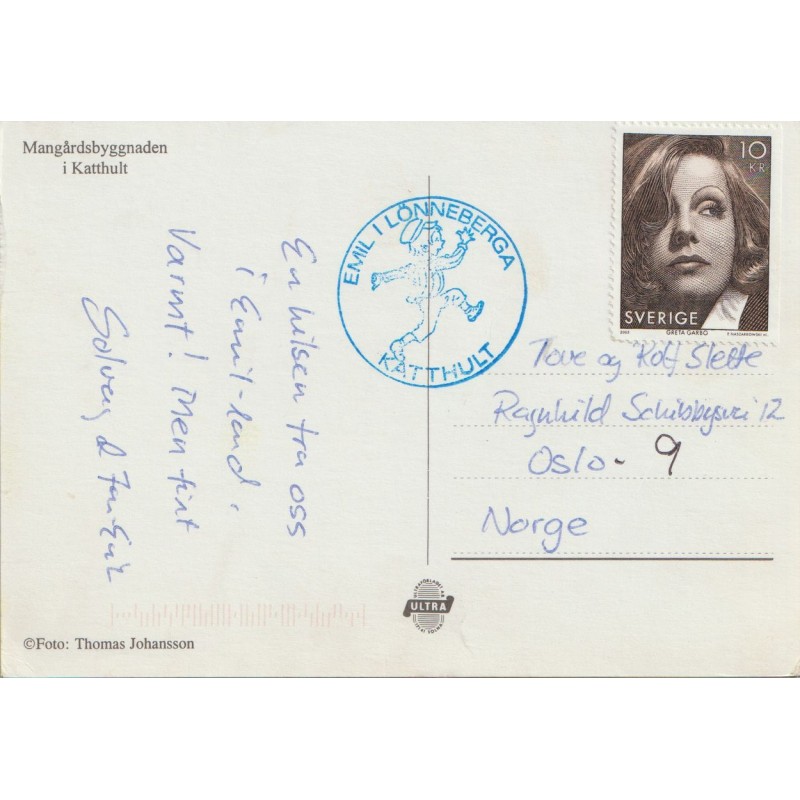 Mangårdsbyggnaden
i Katthult
EMIL I LÖNNEBERGA
KATTHULT
10
KR
SVERIGE
2005
GRETA GARBO
En hilsen fra oss
i Emil-land.
Varmt! Men fint
Solveig & Jan-Erik
Tove og Rolf Slette
Ragnhild Schibbysvei 12
Oslo - 9
Norge
ULTRA
©Foto: Thomas Johansson